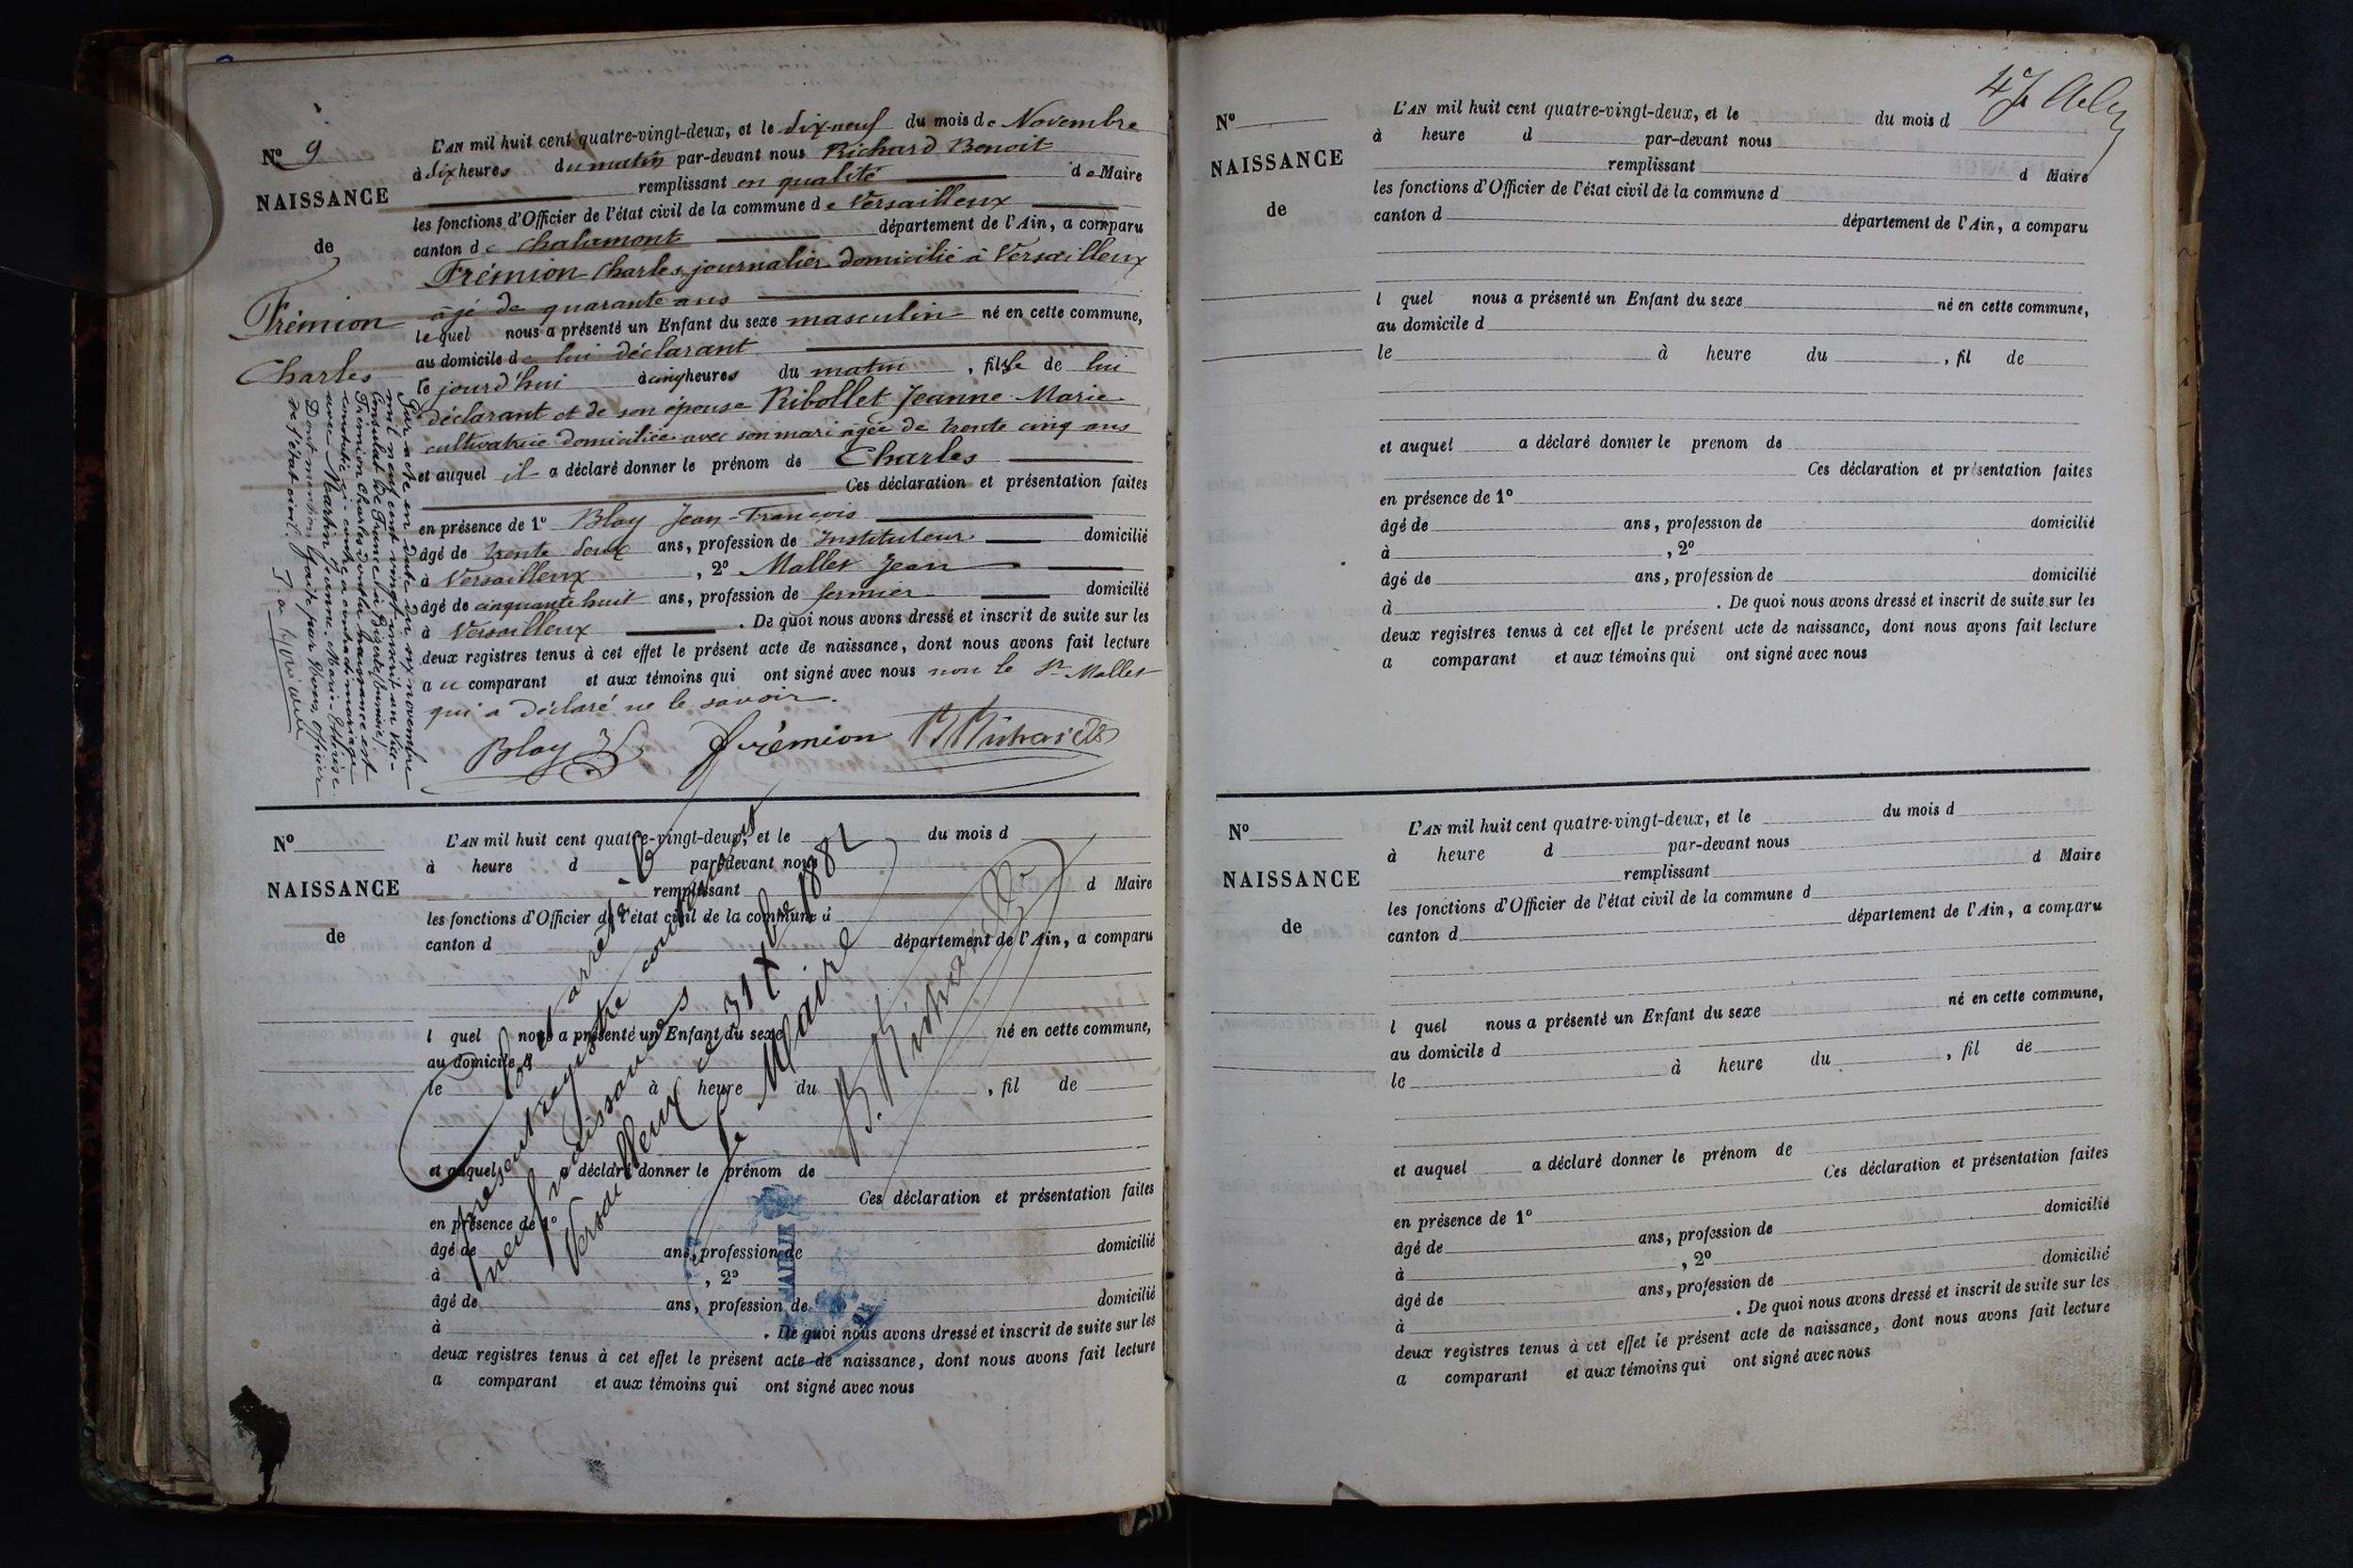 Nº 9
NAISSANCE
de
Frémion
Charles
L'AN mil huit cent quatre-vingt-deux, et le dix-neuf du mois de Novembre
à dix heures du matin par-devant nous Richard Benoit
remplissant en qualité de Maire
les fonctions d'Officier de l'état civil de la commune de Versailleux
canton de Chalamont département de l'Ain, a comparu
Frémion Charles, journalier domicilié à Versailleux
âgé de quarante ans
lequel nous a présenté un Enfant du sexe masculin né en cette commune,
au domicile de lui déclarant
le jourd'hui à cinq heures du matin, fils de lui
déclarant et de son épouse Ribollet Jeanne Marie
cultivatrice domiciliée avec son mari âgée de trente cinq ans
et auquel il a déclaré donner le prénom de Charles
Ces déclaration et présentation faites
en présence de 1º Bloy Jean-François
âgé de trente deux ans, profession de Instituteur domicilié
à Versailleux, 2º Mallet Jean
âgé de cinquante huit ans, profession de fermier domicilié
à Versailleux. De quoi nous avons dressé et inscrit de suite sur les
deux registres tenus à cet effet le présent acte de naissance, dont nous avons fait lecture
au comparant et aux témoins qui ont signé avec nous non le Sr Mallet
qui a déclaré ne le savoir.
Bloy Frémion B Richard
Par acte en date du six novembre
mil neuf cent vingt un, Vice-
Consulat de France à Bizerte (Tunisie)
Frémion Charles dont la naissance est
constatée ci-contre a contracté mariage
avec Martin Jeanne Marie
Dont mention faite par Nous, Officier
de l'état civil.
Nº
NAISSANCE
de
L'AN mil huit cent quatre-vingt-deux, et le du mois d
à heure d par-devant nous
remplissant d Maire
les fonctions d'Officier de l'état civil de la commune d
canton d département de l'Ain, a comparu
l quel nous a présenté un Enfant du sexe né en cette commune,
au domicile d
le à heure du , fil de
et auquel a déclaré donner le prénom de
Ces déclaration et présentation faites
en présence de 1º
âgé de ans, profession de domicilié
à , 2º
âgé de ans, profession de domicilié
à . De quoi nous avons dressé et inscrit de suite sur les
deux registres tenus à cet effet le présent acte de naissance, dont nous avons fait lecture
a comparant et aux témoins qui ont signé avec nous
Clos et arrêté le
présent registre contenant
neuf naissances
Versailleux le 31 Xbre 1882
Le Maire
B. Richard
MAIRIE
Nº
NAISSANCE
de
L'AN mil huit cent quatre-vingt-deux, et le du mois d
à heure d par-devant nous
remplissant d Maire
les fonctions d'Officier de l'état civil de la commune d
canton d département de l'Ain, a comparu
l quel nous a présenté un Enfant du sexe né en cette commune,
au domicile d
le à heure du , fil de
et auquel a déclaré donner le prenom de
Ces déclaration et présentation faites
en présence de 1º
âgé de ans, profession de domicilié
à , 2º
âgé de ans, profession de domicilié
à . De quoi nous avons dressé et inscrit de suite sur les
deux registres tenus à cet effet le présent acte de naissance, dont nous avons fait lecture
a comparant et aux témoins qui ont signé avec nous
Nº
NAISSANCE
de
L'AN mil huit cent quatre-vingt-deux, et le du mois d
à heure d par-devant nous
remplissant d Maire
les fonctions d'Officier de l'état civil de la commune d
canton d département de l'Ain, a comparu
l quel nous a présenté un Enfant du sexe né en cette commune,
au domicile d
le à heure du , fil de
et auquel a déclaré donner le prénom de
Ces déclaration et présentation faites
en présence de 1º
âgé de ans, profession de domicilié
à , 2º
âgé de ans, profession de domicilié
à . De quoi nous avons dressé et inscrit de suite sur les
deux registres tenus à cet effet le présent acte de naissance, dont nous avons fait lecture
a comparant et aux témoins qui ont signé avec nous